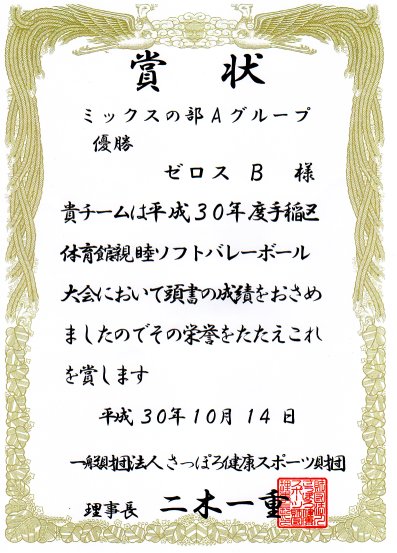 賞状
ミックスの部Aグループ
優勝
ゼロス B 様
貴チームは平成30年度手稲区
体育館親睦ソフトバレーボール
大会において頭書の成績をおさめ
ましたのでその栄誉をたたえこれ
を賞します
平成30年10月14日
一般財団法人さっぽろ健康スポーツ財団
理事長 二木一重